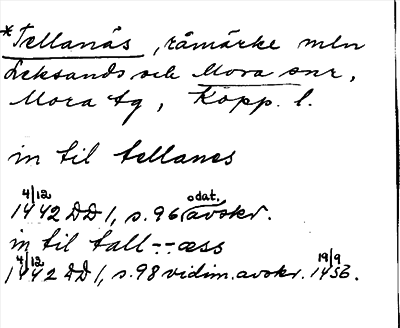 *Tellanäs, råmärke mln
Leksands och Mora snr,
Mora tg, Kopp. l.
in til tellanes
4/12 1442 DD 1, s. 96 odat. avskr.
in til tall--æss
4/12 1442 DD 1, s. 98 vidim. avskr. 19/9 1456.